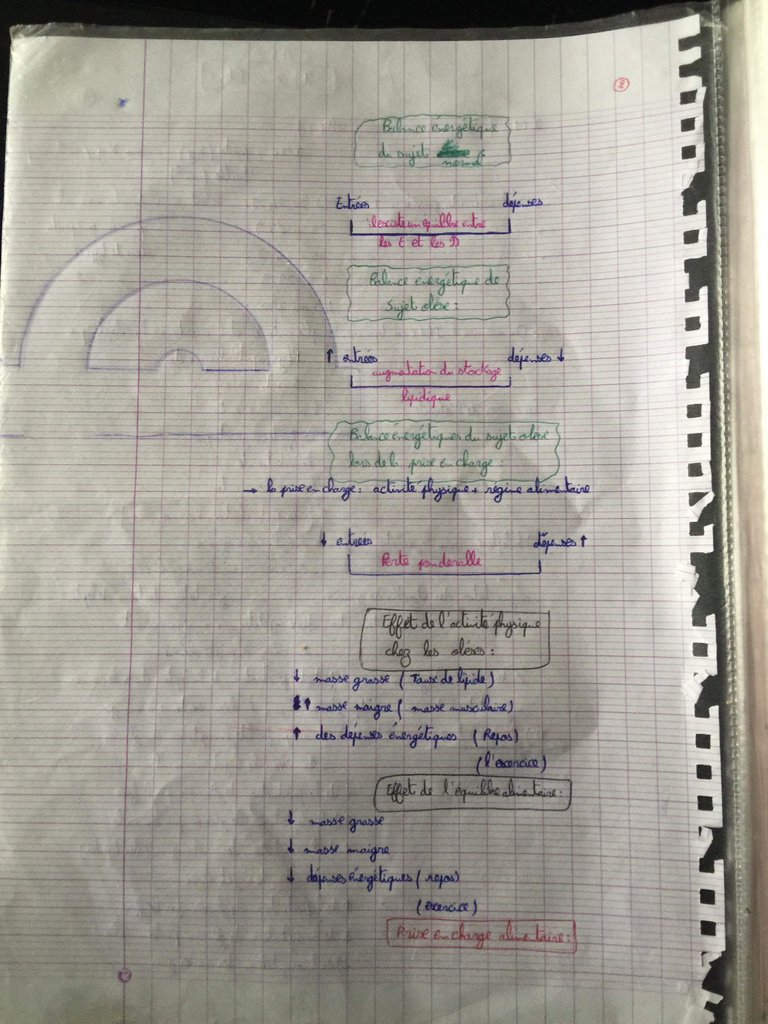 2
Balance énergétique
du sujet normal
Entrées dépenses
il existe un équilibre entre
les E et les D
Balance énergétique de
sujet obèse :
↑ entrées dépenses ↓
augmentation du stockage
lipidique
Balance énergétiques du sujet obèse
lors de la prise en charge :
→ la prise en charge : activité physique + régime alimentaire
↓ entrées dépenses ↑
Perte ponderalle
Effet de l'activité physique
chez les obèses :
↓ masse grasse ( Taux de lipide )
↑ masse maigre ( masse musculaire )
↑ des dépenses énergétiques ( Repos )
( l'exercice )
Effet de l'équilibre alimentaire :
↓ masse grasse
↓ masse maigre
↓ dépenses énergétiques ( repos )
( exercice )
Prise en charge alimentaire :